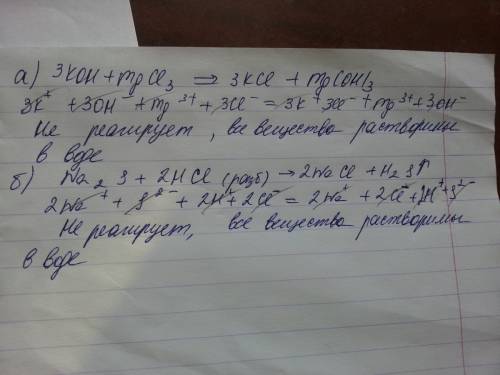 а) 3KOH + mgCl₃ ⇒ 3KCl + mg(OH)₃
3K⁺ + 3OH⁻ + mg³⁺ + 3Cl⁻ = 3K⁺ 3Cl⁻ + mg³⁺ + 3OH⁻
Не реагирует, все вещества растворимы
в воде
б) Na₂S + 2HCl (разб) → 2NaCl + H₂S↑
2Na⁺ + S²⁻ + 2H⁺ + 2Cl⁻ = 2Na⁺ + 2Cl⁻ + 2H⁺ + S²⁻
Не реагирует, все вещества растворимы
в воде